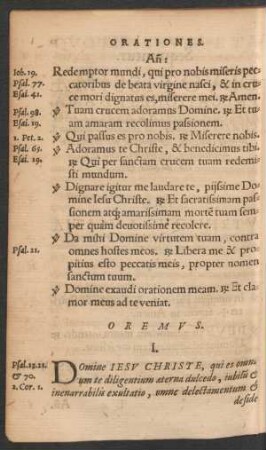 ORATIONES.
Añ:
Ioh. 19. Redemptor mundi, qui pro nobis miseris pec-
Psal. 77. catoribus de beata virgine nasci, & in cru-
Esai. 41. ce mori dignatus es, miserere mei. ℟ Amen.
Psal. 98. ℣ Tuam crucem adoramus Domine. ℟ Et tu-
Esai. 19. am amaram recolimus passionem.
1. Pet. 2. ℣ Qui passus es pro nobis. ℟ Miserere nobis.
Psal. 65. ℣ Adoramus te Christe, & benedicimus tibi.
Esai. 19. ℟ Qui per sanctam crucem tuam redemi-
sti mundum.
℣ Dignare igitur me laudare te, pijssime Do-
mine Iesu Christe. ℟ Et sacratissimam pas-
sionem atq; amarissimam mortē tuam sem-
per quàm deuotissimè recolere.
Psal. 21. ℣ Da mihi Domine virtutem tuam, contra
omnes hostes meos. ℟ Libera me & pro-
pitius esto peccatis meis, propter nomen
sanctum tuum.
℣ Domine exaudi orationem meam. ℟ Et cla-
mor meus ad te veniat.
OREMVS.
I.
Psal. 12. 21. Domine IESV CHRISTE, qui es omni-
& 70. um te diligentium æterna dulcedo, iubilus &
2. Cor. 1. inenarrabilis exultatio, omne delectamentum &
deside